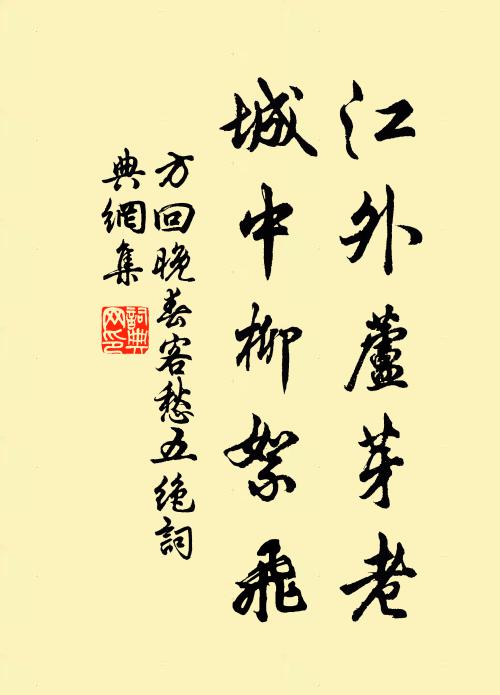 江外蘆芽老
城中柳絮飛
方回晚春客愁五绝詞
典網集
詞典
网印